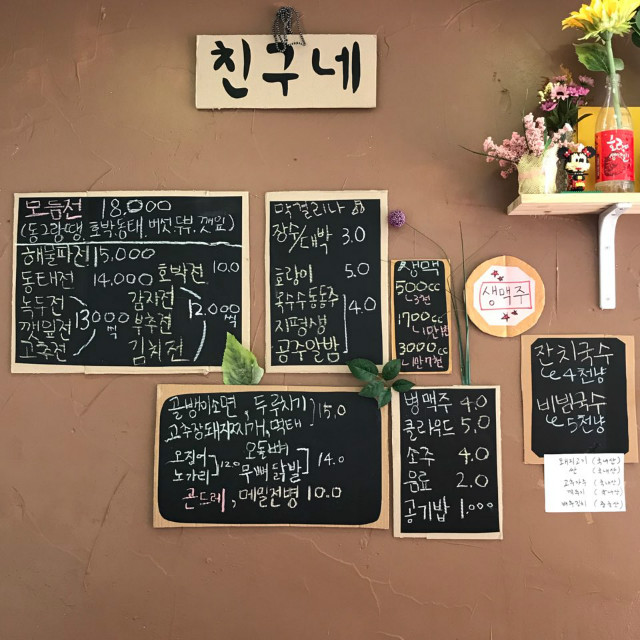 친구네
모듬전 18.000
(동그랑땡, 호박, 동태, 버섯, 두부, 깻잎)
해물파전 15,000
동태전 14.000 호박전 10.0
녹두전
깻잎전 13000 씩
고추전
감자전
부추전 12.000 씩
김치전
막걸리나
장수/대박 3.0
호랑이 5.0
옥수수동동주
지평생 4.0
공주알밤
생맥
500cc
ㄴ3천
1700cc
ㄴ1만
3000cc
ㄴ1만7천
생맥주
잔치국수
4천냥
비빔국수
5천냥
돼지고기 (국내산)
쌀 (국내산)
고추가루 (국내산)
(국내산)
배추김치 (국내산)
골뱅이소면, 두루치기 15.0
고추장돼지찌개, 먹태
오징어
노가리 12.0
오돌뼈
무뼈닭발 14.0
곤드레, 메밀전병 10.0
병맥주 4.0
클라우드 5.0
소주 4.0
음료 2.0
공기밥 1.000